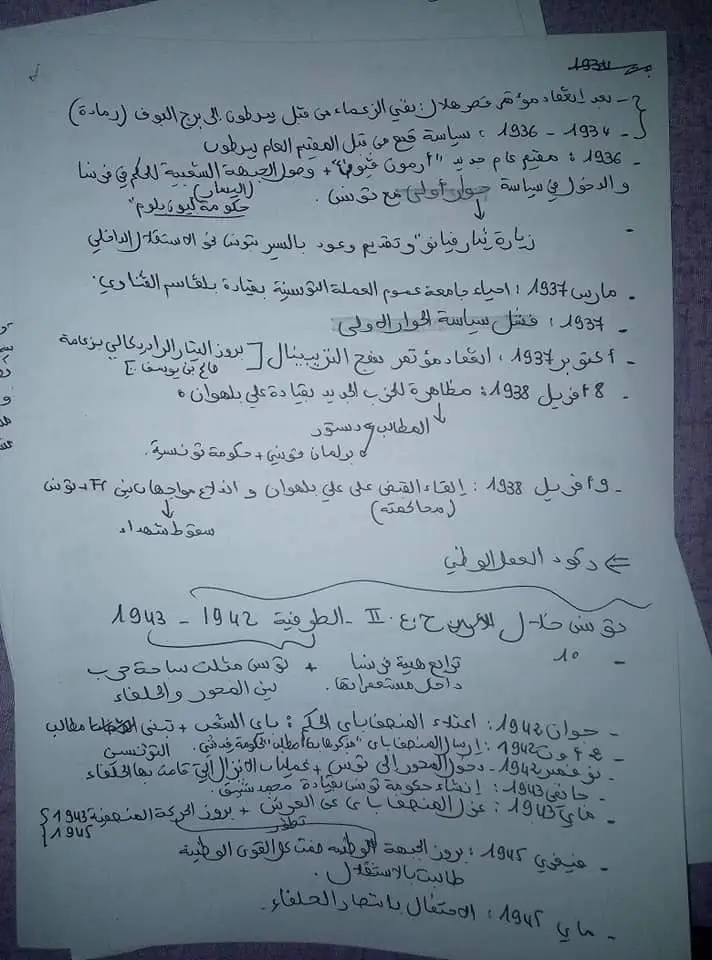 1934
- بعد انعقاد مؤتمر قصر هلال: نفي الزعماء من قبل بيرطون إلى برج البوف (رمادة)
- 1934 - 1936 : سياسة قمع من قبل المقيم العام بيرطون
- 1936 : مقيم عام جديد "أرمون قيون" + وصول الجبهة الشعبية للحكم في فرنسا
(اليسار)
والدخول في سياسة حوار أولى مع تونس.
حكومة ليون بلوم"
- زيارة بيار فيانو" وتقديم وعود بالسير بتونس نحو الاستقلال الداخلي
- مارس 1937 : احياء جامعة عموم العملة التونسية بقيادة بلقاسم القناوي.
- 1937 : فشل سياسة الحوار الاولى
- أكتوبر 1937 : انعقاد مؤتمر نهج التريبينال [بروز التيار الراديكالي بزعامة
صالح بن يوسف.]
- 8 افريل 1938 : مظاهرة للحزب الجديد بقيادة علي بلهوان
المطالب دستور
برلمان تونسي + حكومة تونسية.
- 9 افريل 1938 : إلقاء القبض على علي بلهوان و اندلاع مواجهات بين Fr + تونس
(محاكمته)
سقوط شهداء
⇐ ركود العمل الوطني
تونس خلال ح.ع. II - الظرفية 1942 - 1943
- 10
تراجع هيبة فرنسا + تونس مثلت ساحة حرب
داخل مستعمراتها. بين المحور والحلفاء
- جوان 1942 : اعتلاء المنصف باي الحكم : باي الشعب + تبنى مطالب
التونسي
- 2 أوت 1942 : إرسال المنصف باي "مذكرة بها مطالب لحكومة فيشي.
- نوفمبر 1942 - دخول المحور الى تونس + عمليات الانزال التي قامت بها الحلفاء
- جانفي 1943 : إنشاء حكومة تونس بقيادة محمد شنيق.
- ماي 1943 : عزل المنصف باي عن العرش + بروز الحركة المنصفية {1943
1945
تطور
- فيفري 1945 : بروز الجبهة الوطنية ضمت كل القوى الوطنية
طالبت بالاستقلال.
- ماي 1945 : الاحتفال بانتصار الحلفاء.